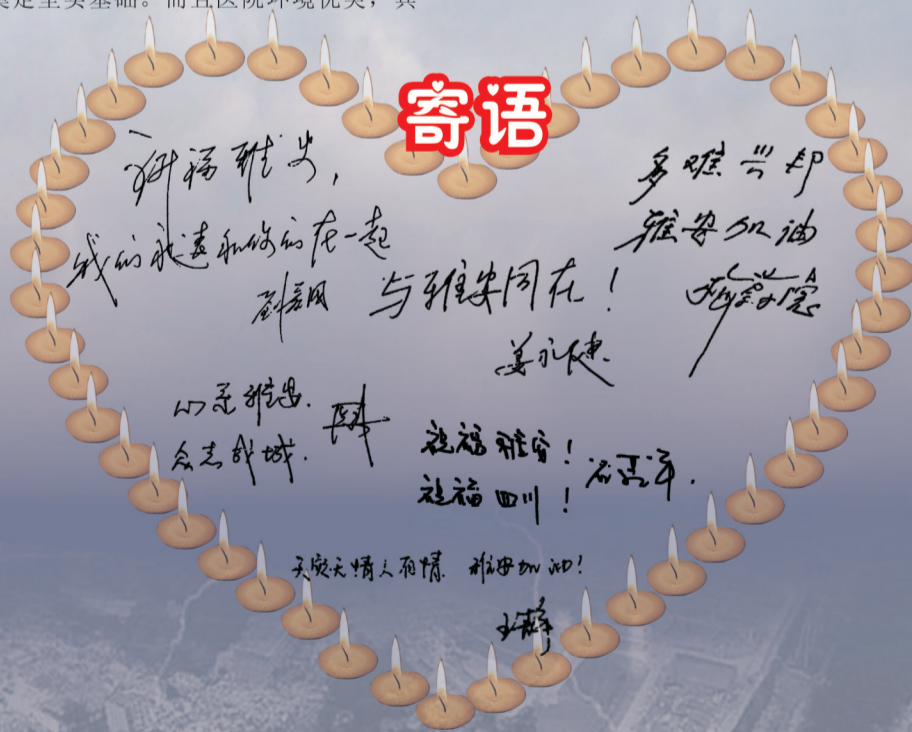 奠定坚实基础。而且医院环境优美，其
寄语
祈福雅安，
我们永远和你们在一起
与雅安同在！
姜永健
多难兴邦
雅安加油
心系雅安.
众志成城.
祝福雅安！
祝福四川！
天灾无情人有情 雅安加油！
王静